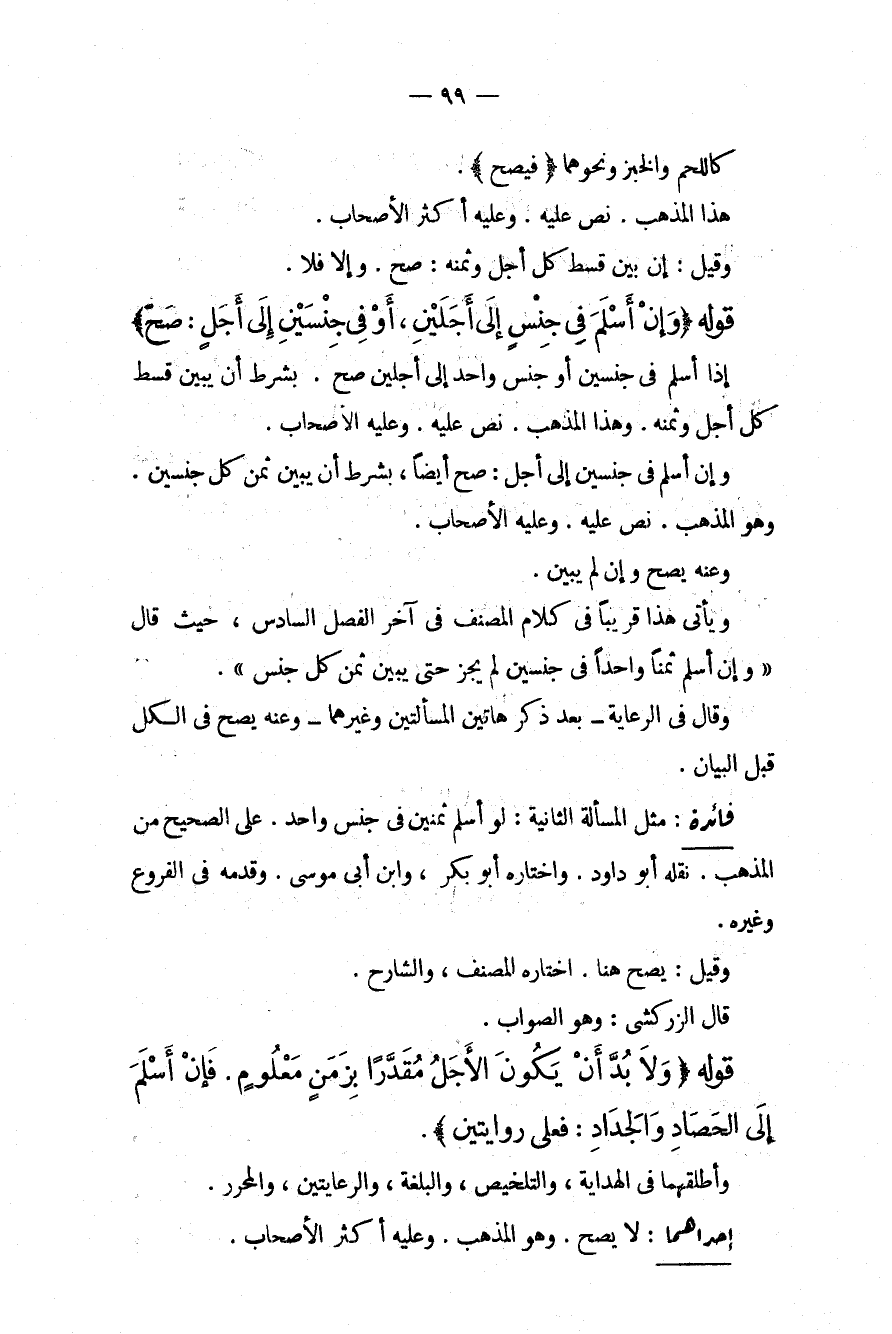 — ٩٩ —
كاللحم والخبز ونحوهما ﴿ فيصح ﴾ .
هذا المذهب . نص عليه . وعليه أكثر الأصحاب .
وقيل : إن بين قسط كل أجل وثمنه : صح . وإلا فلا .
قوله ﴿ وَإِنْ أَسْلَمَ فِي جِنْسٍ إِلَى أَجَلَيْنِ ، أَوْ فِي جِنْسَيْنِ إِلَى أَجَلٍ : صَحَّ ﴾
إذا أسلم فى جنسين أو جنس واحد إلى أجلين صح . بشرط أن يبين قسط
كل أجل وثمنه . وهذا المذهب . نص عليه . وعليه الأصحاب .
وإن أسلم فى جنسين إلى أجل : صح أيضاً ، بشرط أن يبين ثمن كل جنسين .
وهو المذهب . نص عليه . وعليه الأصحاب .
وعنه يصح وإن لم يبين .
ويأتى هذا قريباً فى كلام المصنف فى آخر الفصل السادس ، حيث قال
« وإن أسلم ثمناً واحداً فى جنسين لم يجز حتى يبين ثمن كل جنس » .
وقال فى الرعاية ــ بعد ذكر هاتين المسألتين وغيرهما ــ وعنه يصح فى الكل
قبل البيان .
فائدة : مثل المسألة الثانية : لو أسلم ثمنين فى جنس واحد . على الصحيح من
المذهب . نقله أبو داود . واختاره أبو بكر ، وابن أبى موسى . وقدمه فى الفروع
وغيره .
وقيل : يصح هنا . اختاره المصنف ، والشارح .
قال الزركشى : وهو الصواب .
قوله ﴿ وَلاَ بُدَّ أَنْ يَكُونَ الأَجَلُ مُقَدَّرًا بِزَمَنٍ مَعْلُومٍ . فَإِنْ أَسْلَمَ
إِلَى الحَصَادِ وَالجَدَادِ : فعلى روايتين ﴾ .
وأطلقهما فى الهداية ، والتلخيص ، والبلغة ، والرعايتين ، والمحرر .
إحداهما : لا يصح . وهو المذهب . وعليه أكثر الأصحاب .